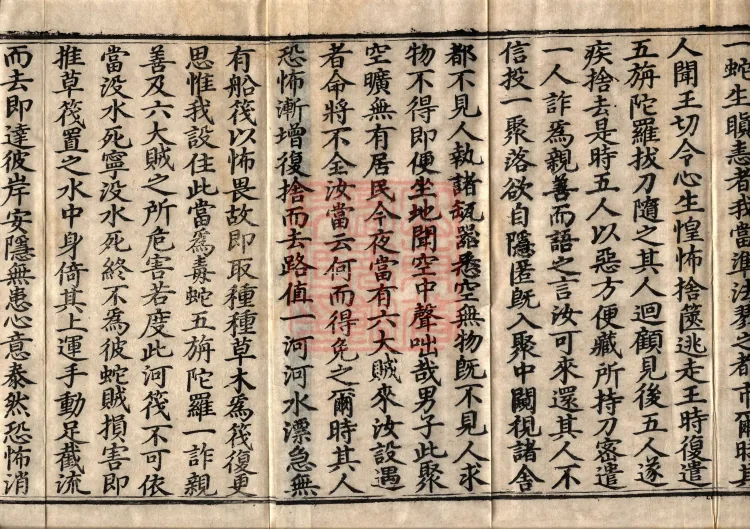 一蛇生瞋恚者我當準法戮之都市爾時其
人聞王切令心生惶怖捨篋逃走王時復遣
五旃陀羅拔刀隨之其人迴顧見後五人遂
疾捨去是時五人以惡方便藏所持刀密遣
一人詐爲親善而語之言汝可來還其人不
信投一聚落欲自隱匿旣入聚中闚視諸舍
都不見人執諸瓨器悉空無物旣不見人求
物不得即便坐地聞空中聲咄哉男子此聚
空曠無有居民今夜當有六大賊來汝設遇
者命將不全汝當云何而得免之爾時其人
恐怖漸增復捨而去路值一河河水漂急無
有船筏以怖畏故即取種種草木爲筏復更
思惟我設住此當爲毒蛇五旃陀羅一詐親
善及六大賊之所危害若度此河筏不可依
當没水死寧没水死終不爲彼蛇賊損害即
推草筏置之水中身倚其上運手動足截流
而去即達彼岸安隱無患心意泰然恐怖消